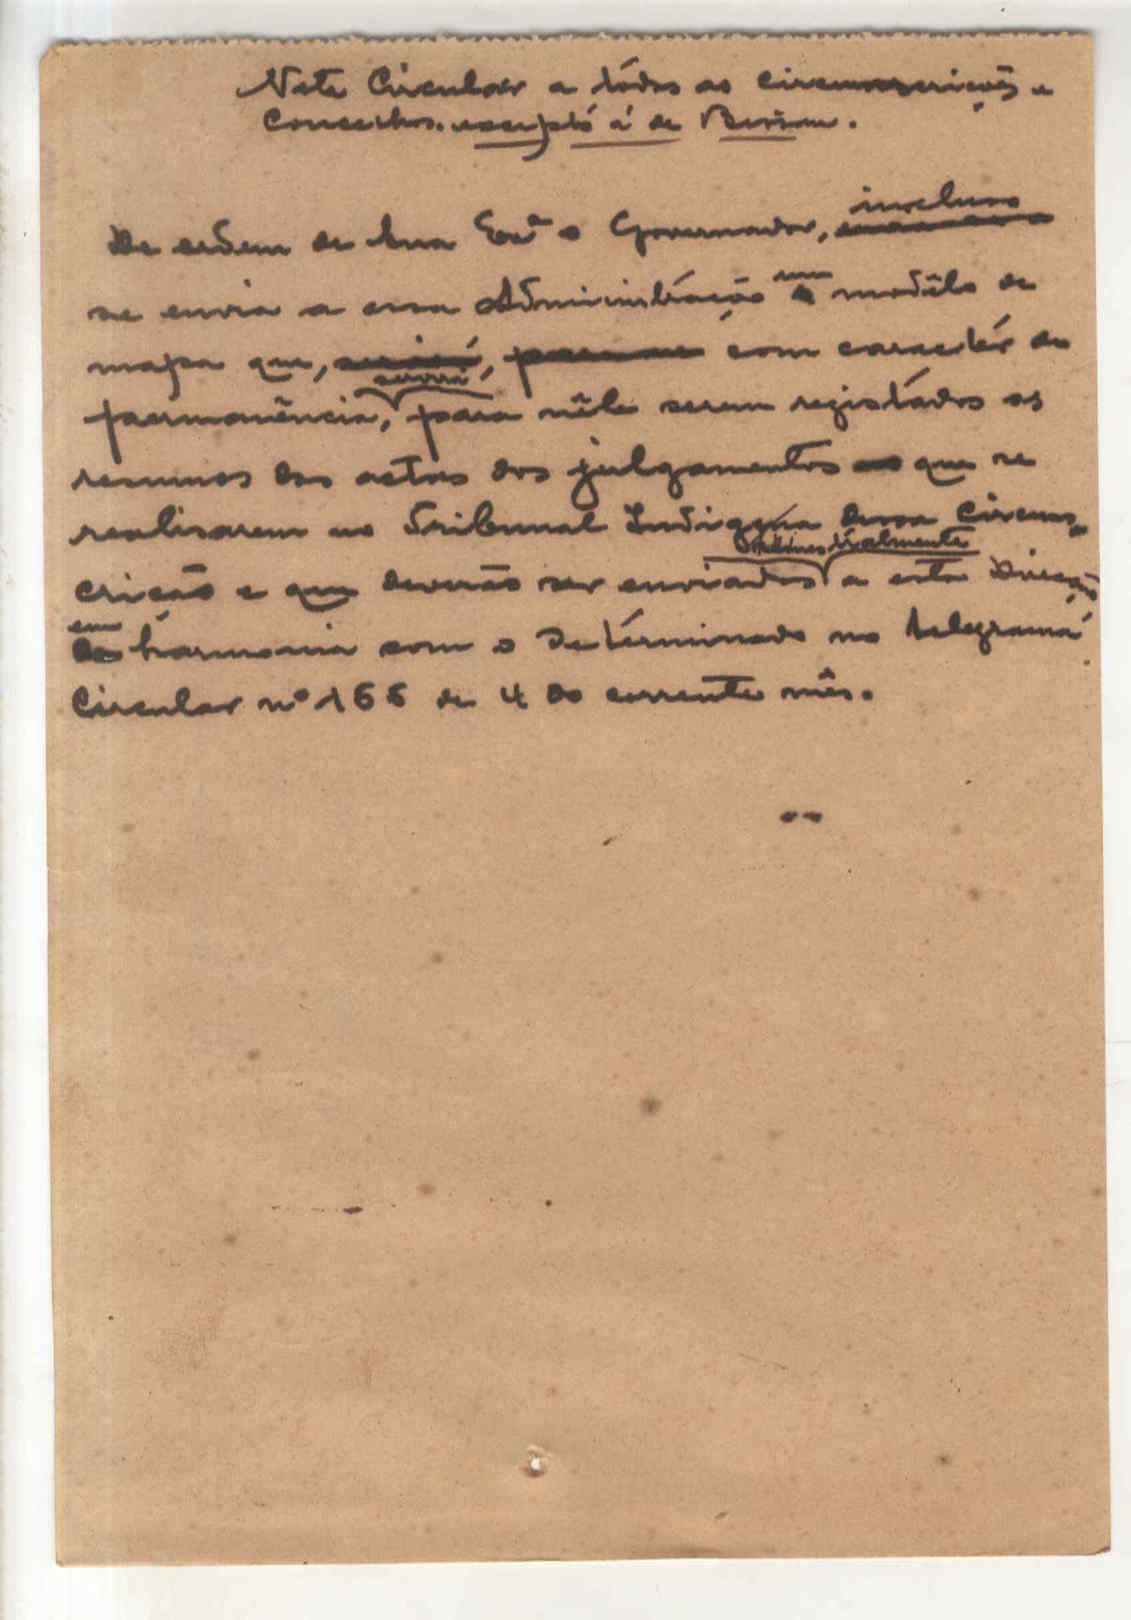 Nota Circular a tódas as circunscrições e
Concelhos. excepto á de Bissau.
incluso
De ordem de Sua Exª o Governador,
se envia a essa Administração um modêlo de
mapa que, com caracter de
servirá,
permanência, para nêle serem registádos os
resumos das actas dos julgamentos que se
realisarem no Tribunal Indigena dessa Circuns-
trimestralmente
crição e que deverão ser enviados a esta Direcção
em
harmonia com o determinado no telegrama
Circular nº 166 de 4 do corrente mês.